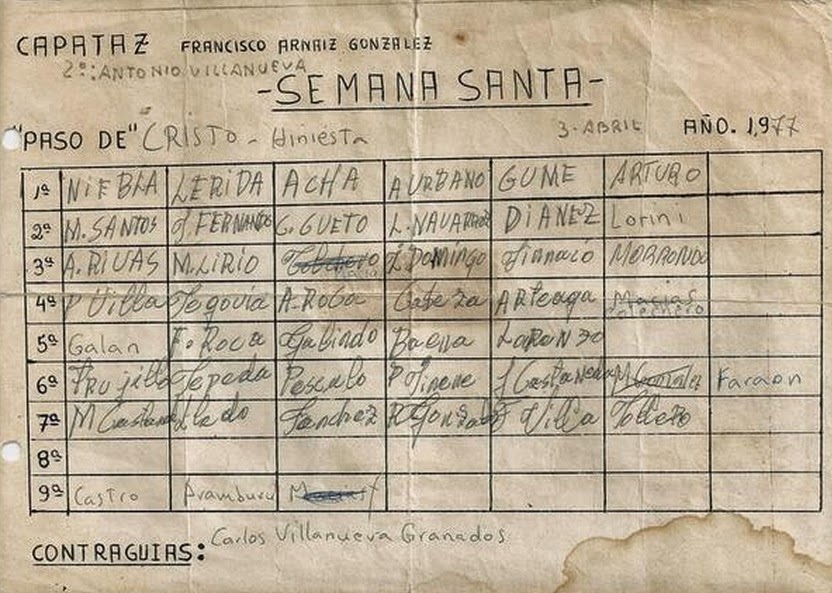 CAPATAZ FRANCISCO ARNAIZ GONZALEZ
2º: ANTONIO VILLANUEVA
-SEMANA SANTA-
"PASO DE" CRISTO - Hiniesta 3-ABRIL AÑO. 1,977
1ª NIEBLA LERIDA ACHA A URBANO GUME ARTURO
2ª M. SANTOS J. FERNANDO C. GUETO L. NAVARRO DIANEZ Lorini
3ª A. RIVAS M. LIRIO Macia Domingo MORRONDO
4ª P Villa Segovia A. ROGA Cabeza ARTEAGA Macias
5ª Galan F. Roca Galindo Baena LORENZO
6ª Trujillo Sepeda Pescato P Jimene J Castaneda M Gonzalez Faraon
7ª M Castano Llado Sanchez R Gonzalez F Villa Tollero
8ª
9ª Castro Aramburu Macias
CONTRAGUIAS: Carlos Villanueva Granados